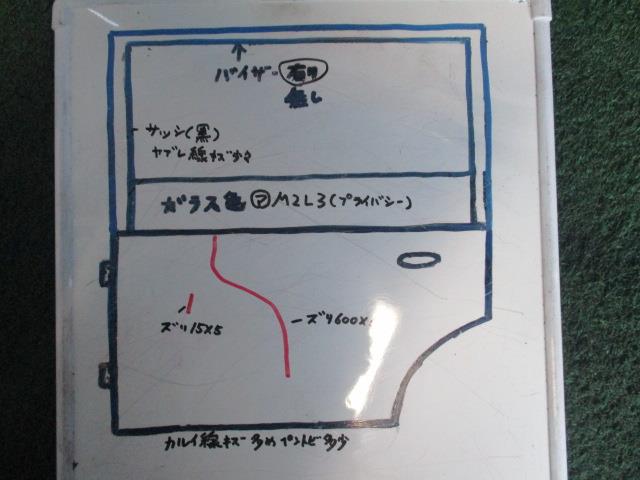 バイザー 有り
無し
サッシ(黒)
ヤブレ線キズ少々
ガラス色 ㋐M2L3(プライバシー)
ズリ15×5
ズリ600×
カルイ線キズ多めペントビ多少